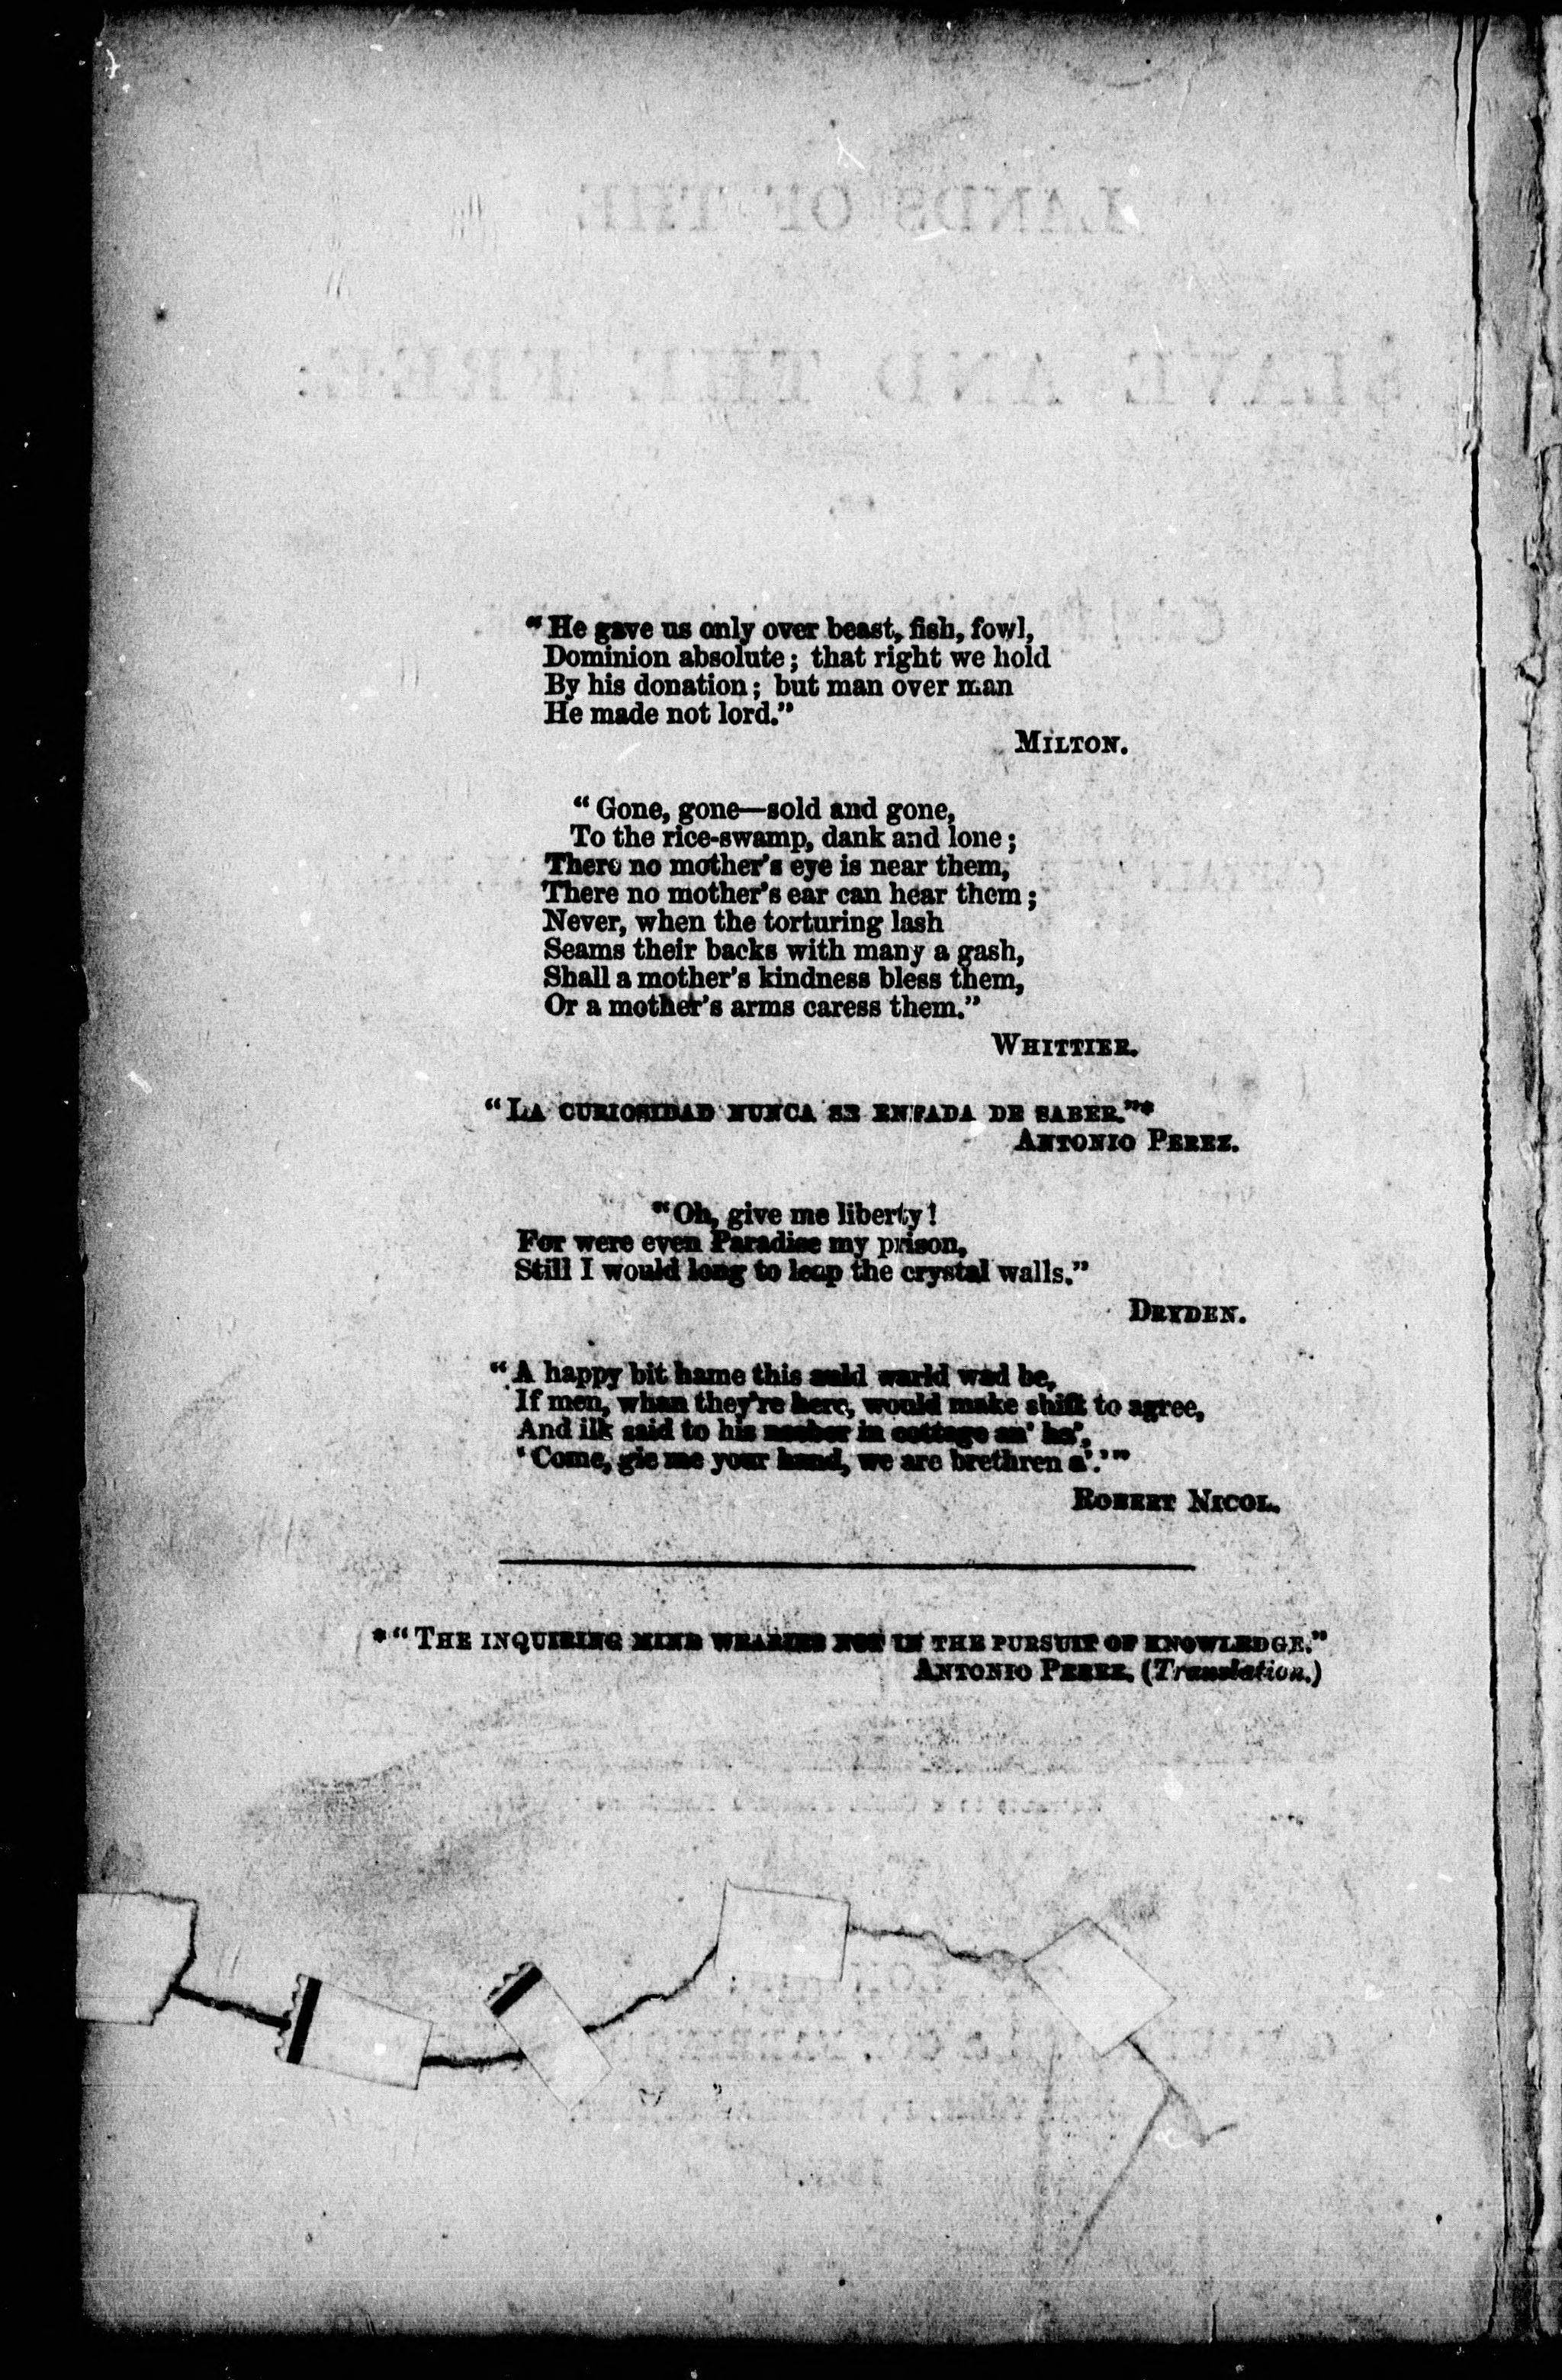 “He gave us only over beast, fish, fowl,
Dominion absolute; that right we hold
By his donation; but man over man
He made not lord.”
MILTON.
“Gone, gone—sold and gone,
To the rice-swamp, dank and lone;
There no mother's eye is near them,
There no mother's ear can hear them;
Never, when the torturing lash
Seams their backs with many a gash,
Shall a mother's kindness bless them,
Or a mother's arms caress them.”
WHITTIER.
“LA CURIOSIDAD NUNCA SE ENFADA DE SABER.”*
ANTONIO PEREZ.
“Oh, give me liberty!
For were even Paradise my prison,
Still I would long to leap the crystal walls.”
DRYDEN.
“A happy bit hame this auld warld wad be,
If men, whan they're here, would make shift to agree,
And ilk said to his neebor in cottage an' ha',
‘Come, gie me your hand, we are brethren a'.’”
ROBERT NICOL.
*“THE INQUIRING MIND WEARIES NOT IN THE PURSUIT OF KNOWLEDGE.”
ANTONIO PEREZ. (Translation.)